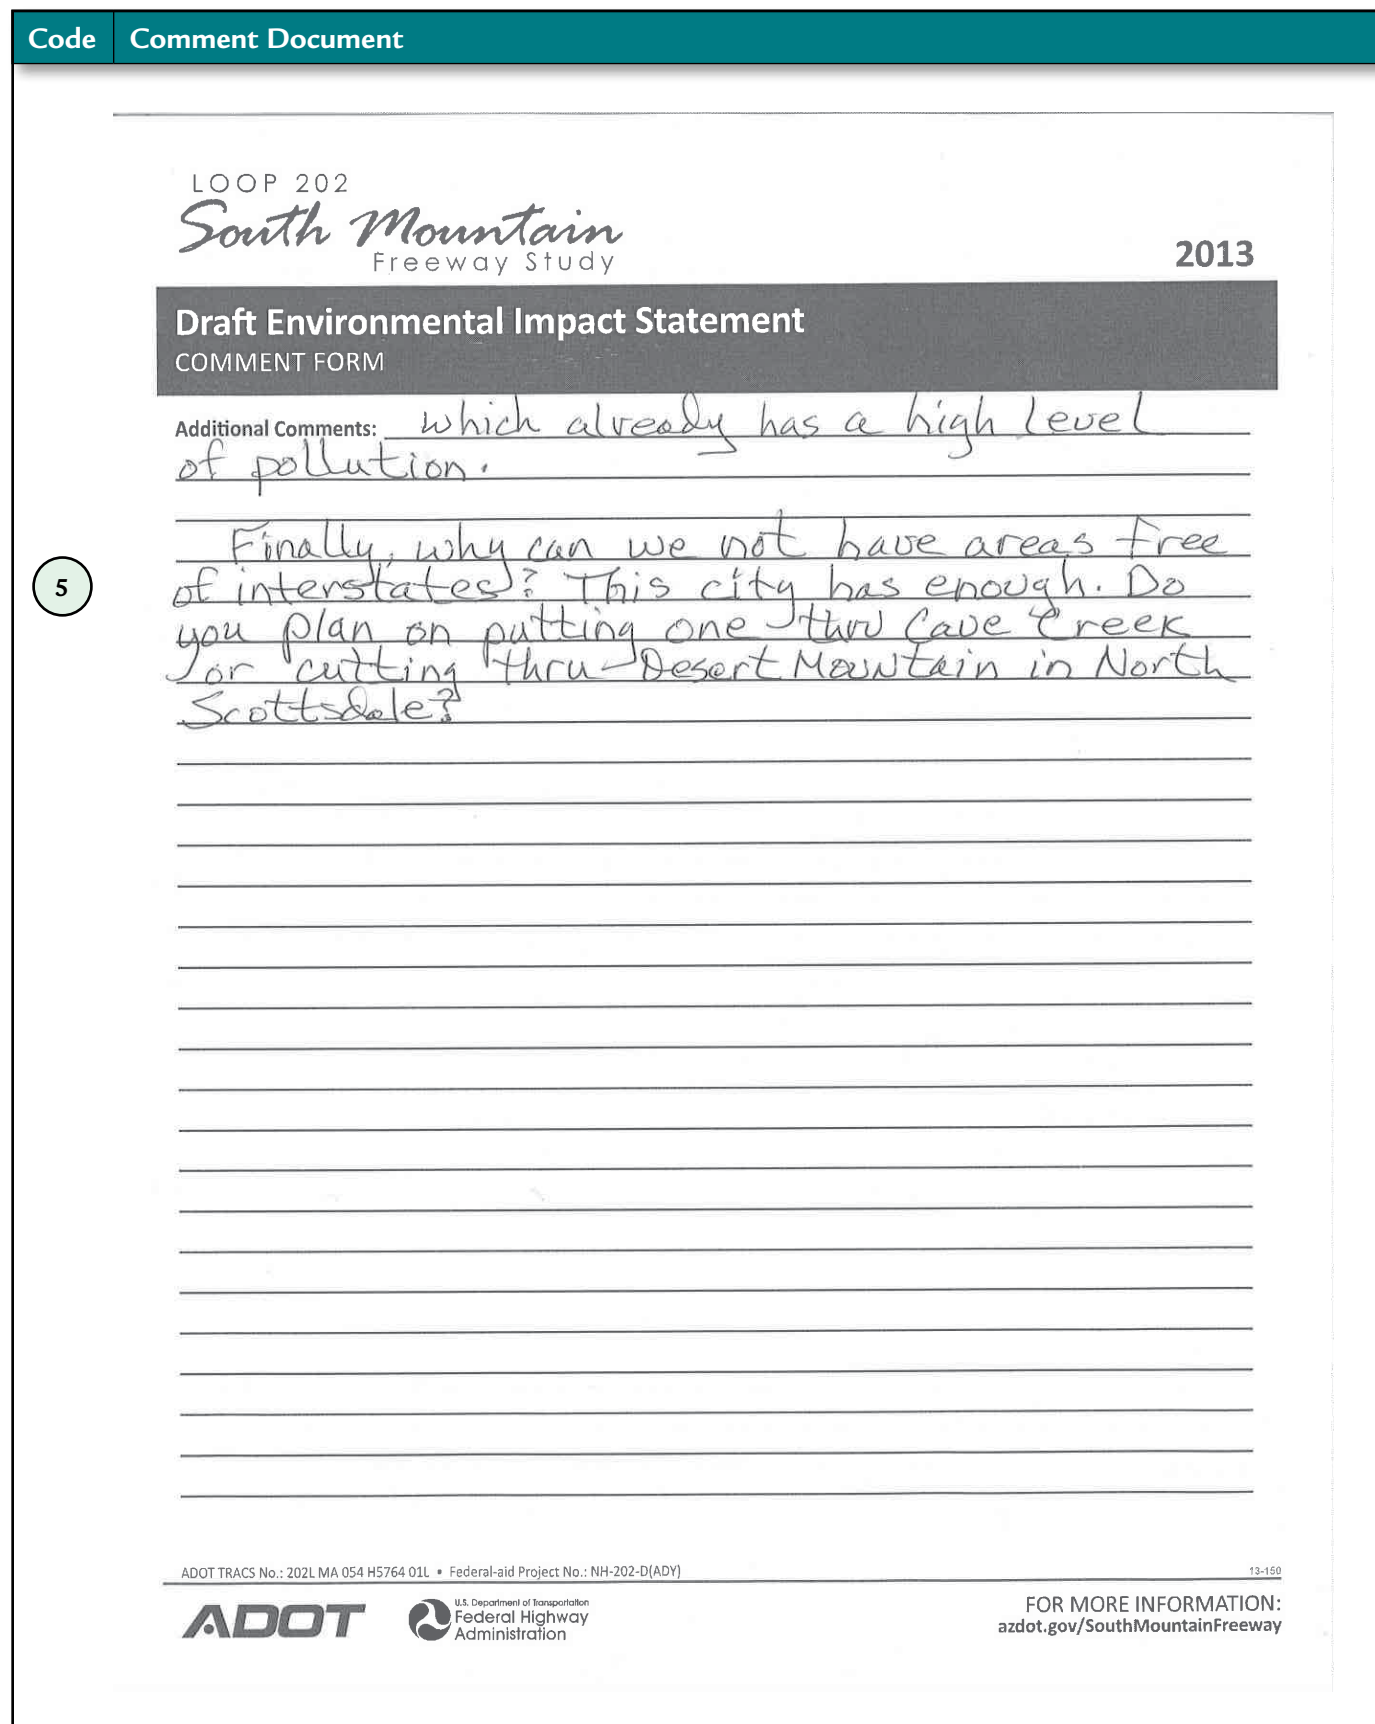 Code Comment Document
LOOP 202
South Mountain
Freeway Study
2013
Draft Environmental Impact Statement
COMMENT FORM
Additional Comments: which already has a high level
of pollution.
Finally, why can we not have areas free
5
of interstates? This city has enough. Do
you plan on putting one thru Cave Creek
or cutting thru Desert Mountain in North
Scottsdale?
ADOT TRACS No.: 202L MA 054 H5764 01L • Federal-aid Project No.: NH-202-D(ADY)
13-150
ADOT
U.S. Department of Transportation
Federal Highway
Administration
FOR MORE INFORMATION:
azdot.gov/SouthMountainFreeway